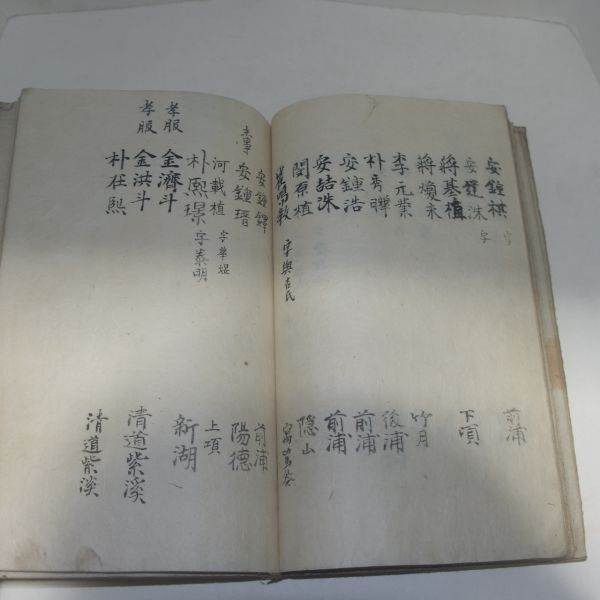 安鍾祺 字 前浦
安鍾洙 字 下項
蔣基植
蔣煥來 竹月
李元業 後浦
朴秀聯 前浦
安鍾浩 前浦
安喆洙 隱山
閔原植
字與吉氏
安鍾 前浦
安鍾瑨 陽德
河載植 字華堤 上項
朴熙璟 字泰明 新湖
孝服 金濟斗 清道紫溪
孝服 金洪斗 清道紫溪
朴在熙